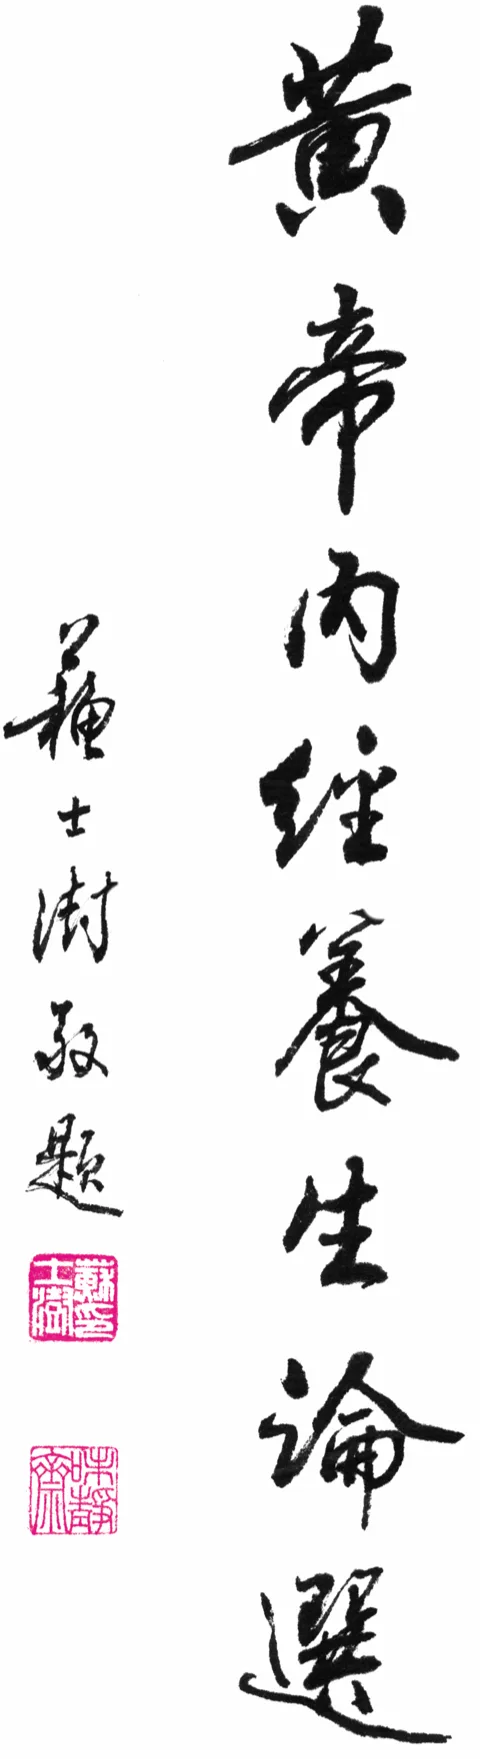 黄帝内經養生論選
蘇士澍敬題
蘇士澍印
味靜齋